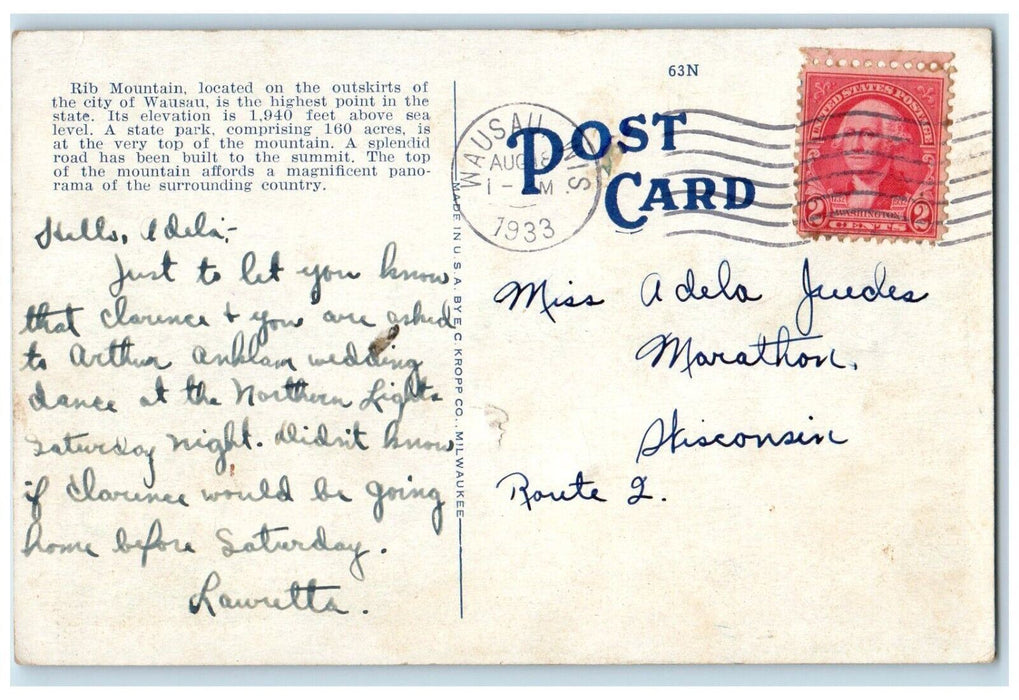 Rib Mountain, located on the outskirts of
the city of Wausau, is the highest point in the
state. Its elevation is 1,940 feet above sea
level. A state park, comprising 160 acres, is
at the very top of the mountain. A splendid
road has been built to the summit. The top
of the mountain affords a magnificent pano-
rama of the surrounding country.
Hello, Adela,-
Just to let you know
that Clarence & you are asked
to Arthur Anklam wedding
dance at the Northern Lights
Saturday night. Didn't know
if Clarence would be going
home before Saturday.
Lauretta.
MADE IN U.S.A. BY E. C. KROPP CO., MILWAUKEE
63N
POST
CARD
WAUSAU WIS.
AUG 18
1 - M
1933
UNITED STATES POSTAGE
1732
WASHINGTON
2 CENTS 2
Miss Adela Juedes
Marathon,
Wisconsin
Route 2.